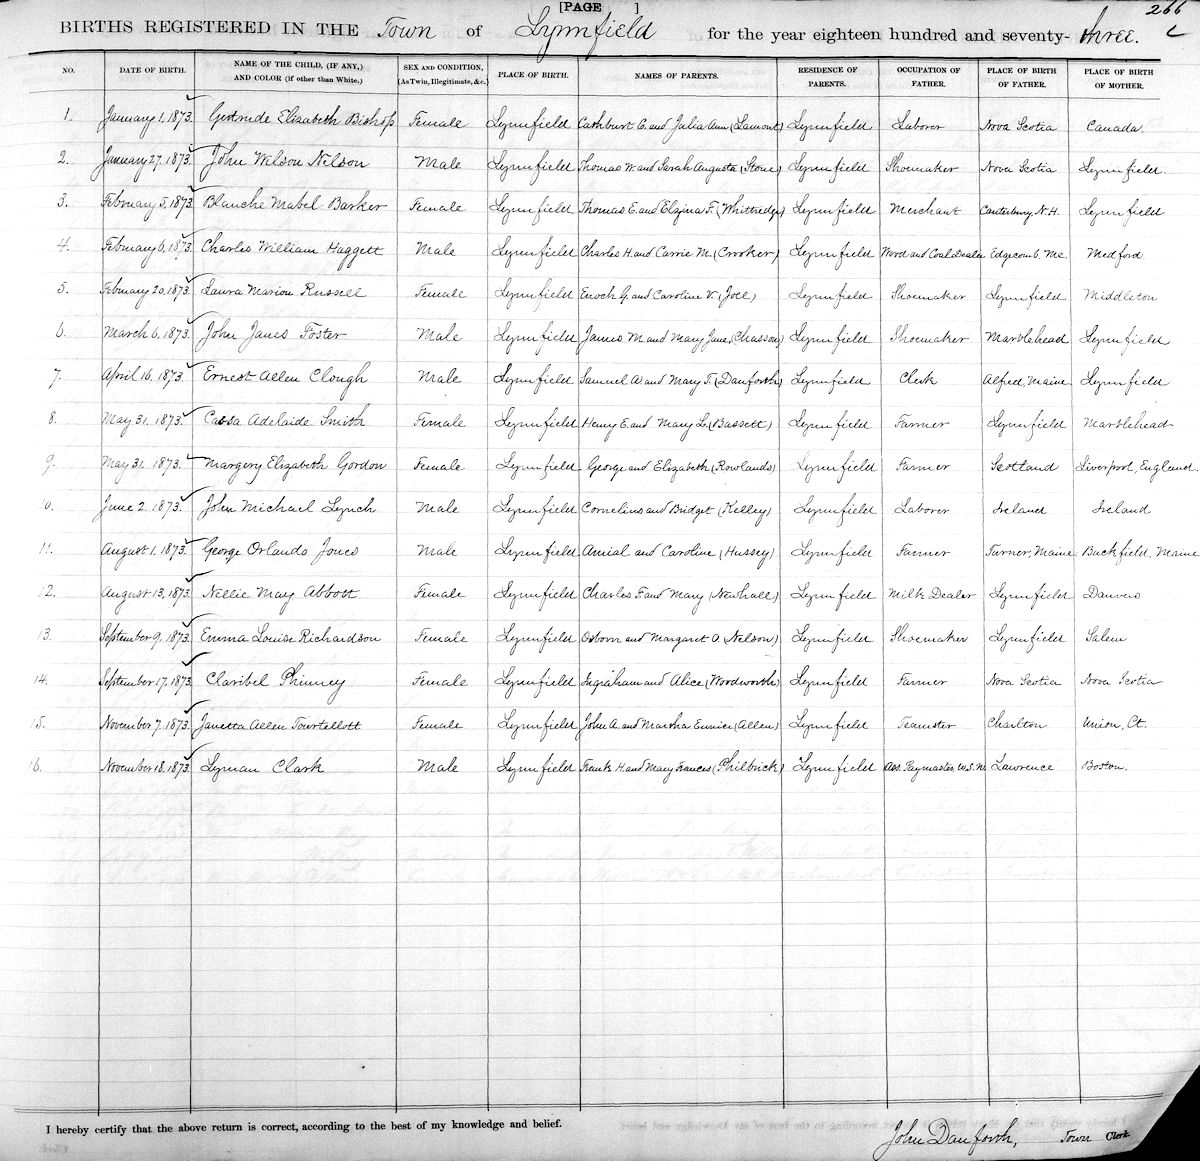 [PAGE ]
266
BIRTHS REGISTERED IN THE Town of Lynnfield for the year eighteen hundred and seventy-three. C
NO. DATE OF BIRTH. NAME OF THE CHILD, (IF ANY,) AND COLOR (if other than White.) SEX AND CONDITION, (As Twin, Illegitimate, &c.) PLACE OF BIRTH. NAMES OF PARENTS. RESIDENCE OF PARENTS. OCCUPATION OF FATHER. PLACE OF BIRTH OF FATHER. PLACE OF BIRTH OF MOTHER.
1. January 1, 1873. Gertrude Elizabeth Bishop Female Lynnfield Cathburt C. and Julia Ann (Lamont) Lynnfield Laborer Nova Scotia Canada.
2. January 27, 1873. John Wilson Nilson Male Lynnfield Thomas W. and Sarah Augusta (Stone) Lynnfield Shoemaker Nova Scotia Lynnfield.
3. February 5, 1873. Blanche Mabel Barker Female Lynnfield Thomas E. and Elzina F. (Whittredge) Lynnfield Merchant Canterbury, N.H. Lynnfield
4. February 6, 1873. Charles William Haggett Male Lynnfield Charles H. and Carrie M. (Crooker) Lynnfield Wood and Coal Dealer Edgecomb, Me. Medford
5. February 20, 1873. Laura Marion Russell Female Lynnfield Enoch G. and Caroline V. (Joel) Lynnfield Shoemaker Lynnfield Middleton
6. March 6, 1873. John James Foster Male Lynnfield James M. and Mary Jane (Chasson) Lynnfield Shoemaker Marblehead Lynnfield
7. April 16, 1873. Ernest Allen Clough Male Lynnfield Samuel A. and Mary T. (Danforth) Lynnfield Clerk Alfred, Maine. Lynnfield
8. May 31. 1873. Cassa Adelaide Smith Female Lynnfield Henry E. and Mary L. (Bassett) Lynnfield Farmer Lynnfield Marblehead
9. May 31. 1873. Margery Elizabeth Gordon Female Lynnfield George and Elizabeth (Rowlands) Lynnfield Farmer Scotland Liverpool, England.
10. June 2. 1873. John Michael Lynch Male Lynnfield Cornelius and Bridget (Kelley) Lynnfield Laborer Ireland Ireland
11. August 1. 1873. George Orlando Jones Male Lynnfield Amial and Caroline (Hussey) Lynnfield Farmer Turner, Maine Buckfield, Maine
12. August 13, 1873. Nellie May Abbott Female Lynnfield Charles F. and Mary (Newhall) Lynnfield Milk Dealer Lynnfield Danvers
13. September 9, 1873. Emma Louise Richardson Female Lynnfield Osborn and Margaret A. (Nelson) Lynnfield Shoemaker Lynnfield Salem
14. September 17, 1873. Claribel Phinney Female Lynnfield Ingraham and Alice (Wordworth) Lynnfield Farmer Nova Scotia Nova Scotia
15. November 7. 1873. Janetta Allen Tourtellott Female Lynnfield John A. and Marsha Eunice (Allen) Lynnfield Teamster Charlton Union, Ct.
16. November 18. 1873. Lyman Clark Male Lynnfield Frank H. and Mary Frances (Philbrick) Lynnfield Ass. Paymaster, U.S.N. Lawrence Boston.
I hereby certify that the above return is correct, according to the best of my knowledge and belief.
John Danforth, Town Clerk.